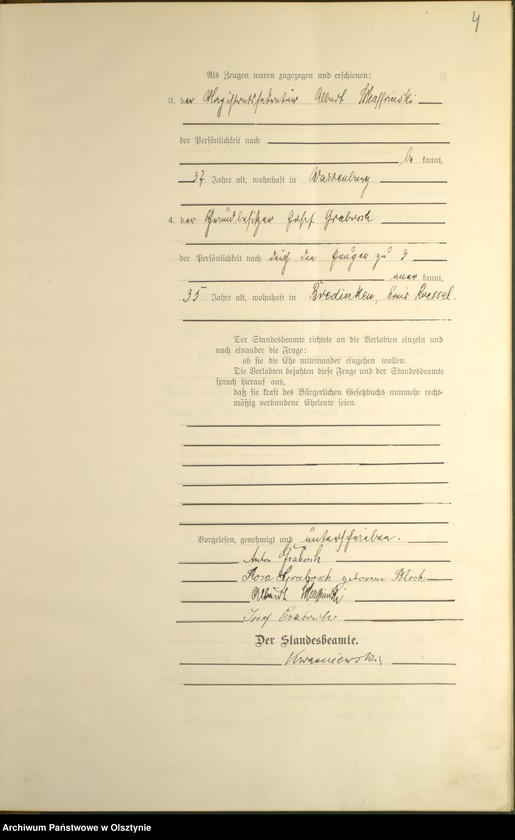 4
Als Zeugen waren zugezogen und erschienen:
3. der Magistratssekretär Albert
der Persönlichkeit nach
be kannt,
37 Jahre alt, wohnhaft in Wartenburg
4. der Grundbesitzer Josef Grabosch
der Persönlichkeit nach durch den Zeugen zu 3
aner kannt,
35 Jahre alt, wohnhaft in Bredincken, Kreis Roessel.
Der Standesbeamte richtete an die Verlobten einzeln und
nach einander die Frage:
ob sie die Ehe miteinander eingehen wollen.
Die Verlobten bejahten diese Frage und der Standesbeamte
sprach hierauf aus,
daß sie kraft des Bürgerlichen Gesetzbuchs nunmehr recht-
mäßig verbundene Eheleute seien.
Vorgelesen, genehmigt und unterschrieben.
Anton Grabosch
Rosa Grabosch geborene Bloch
Albert
Josef Grabosch
Der Standesbeamte.
Kwasniewski
Archiwum Państwowe w Olsztynie